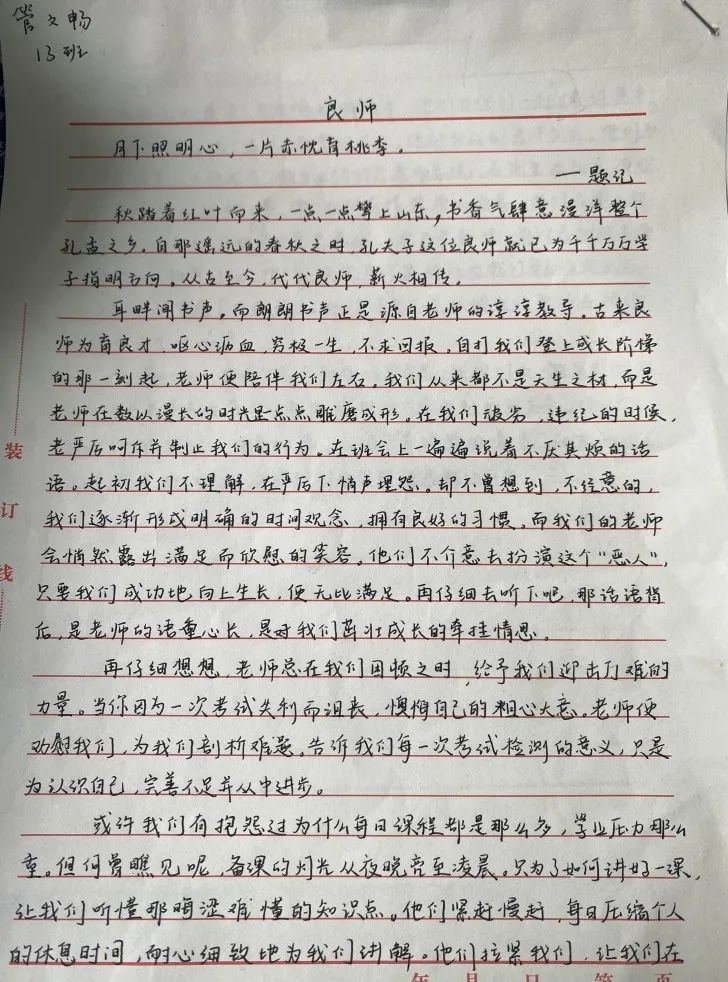 管文畅
13班
良师
月下照明心，一片赤忱育桃李。
——题记
秋踏着红叶而来，一点一点攀上山东，书香气肆意漫洋整个
孔孟之乡。自那遥远的春秋之时，孔夫子这位良师就已为千千万万学
子指明方向。从古至今，代代良师，薪火相传。
耳畔闻书声。而朗朗书声正是源自老师的谆谆教导。古来良
师为育良才，呕心沥血，穷极一生，不求回报。自打我们登上成长阶梯
的那一刻起，老师便陪伴我们左右。我们从来都不是天生之材，而是
老师在数以漫长的时光里点点雕磨成形。在我们顽劣，违纪的时候，
老严厉呵斥并制止我们的行为。在班会上一遍遍说着不厌其烦的话
语。起初我们不理解，在严厉下悄声埋怨。却不曾想到，不经意的，
我们逐渐形成明确的时间观念，拥有良好的习惯。而我们的老师
会悄然露出满足而欣慰的笑容。他们不介意去扮演这个“恶人”，
只要我们成功地向上生长，便无比满足。再仔细去听下吧，那话语背
后，是老师的语重心长，是对我们茁壮成长的牵挂情思。
再仔细想想，老师总在我们困顿之时，给予我们迎击万难的
力量。当你因为一次考试失利而沮丧，懊悔自己的粗心大意。老师便
劝慰我们，为我们剖析难题。告诉我们每一次考试检测的意义，只是
为认识自己，完善不足并从中进步。
或许我们有抱怨过为什么每日课程都是那么多，学业压力那么
重。但何曾瞧见呢，备课的灯光从夜晚亮至凌晨。只为了如何讲好一课，
让我们听懂那晦涩难懂的知识点。他们紧赶慢赶，每日压缩个人
的休息时间，耐心细致地为我们讲解。他们拉紧我们，让我们在
装
订
线
年 月 日 第 页